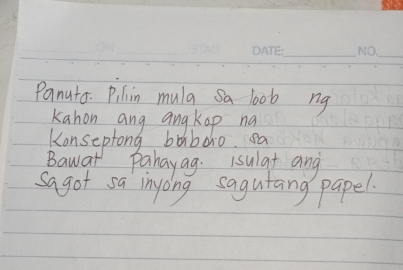 DATE: NO.
Panuto. Piliin mula sa loob ng
kahon ang angkop na
konseptong bubuo sa
Bawat Pahayag. isulat ang
sagot sa inyong sagutang papel.